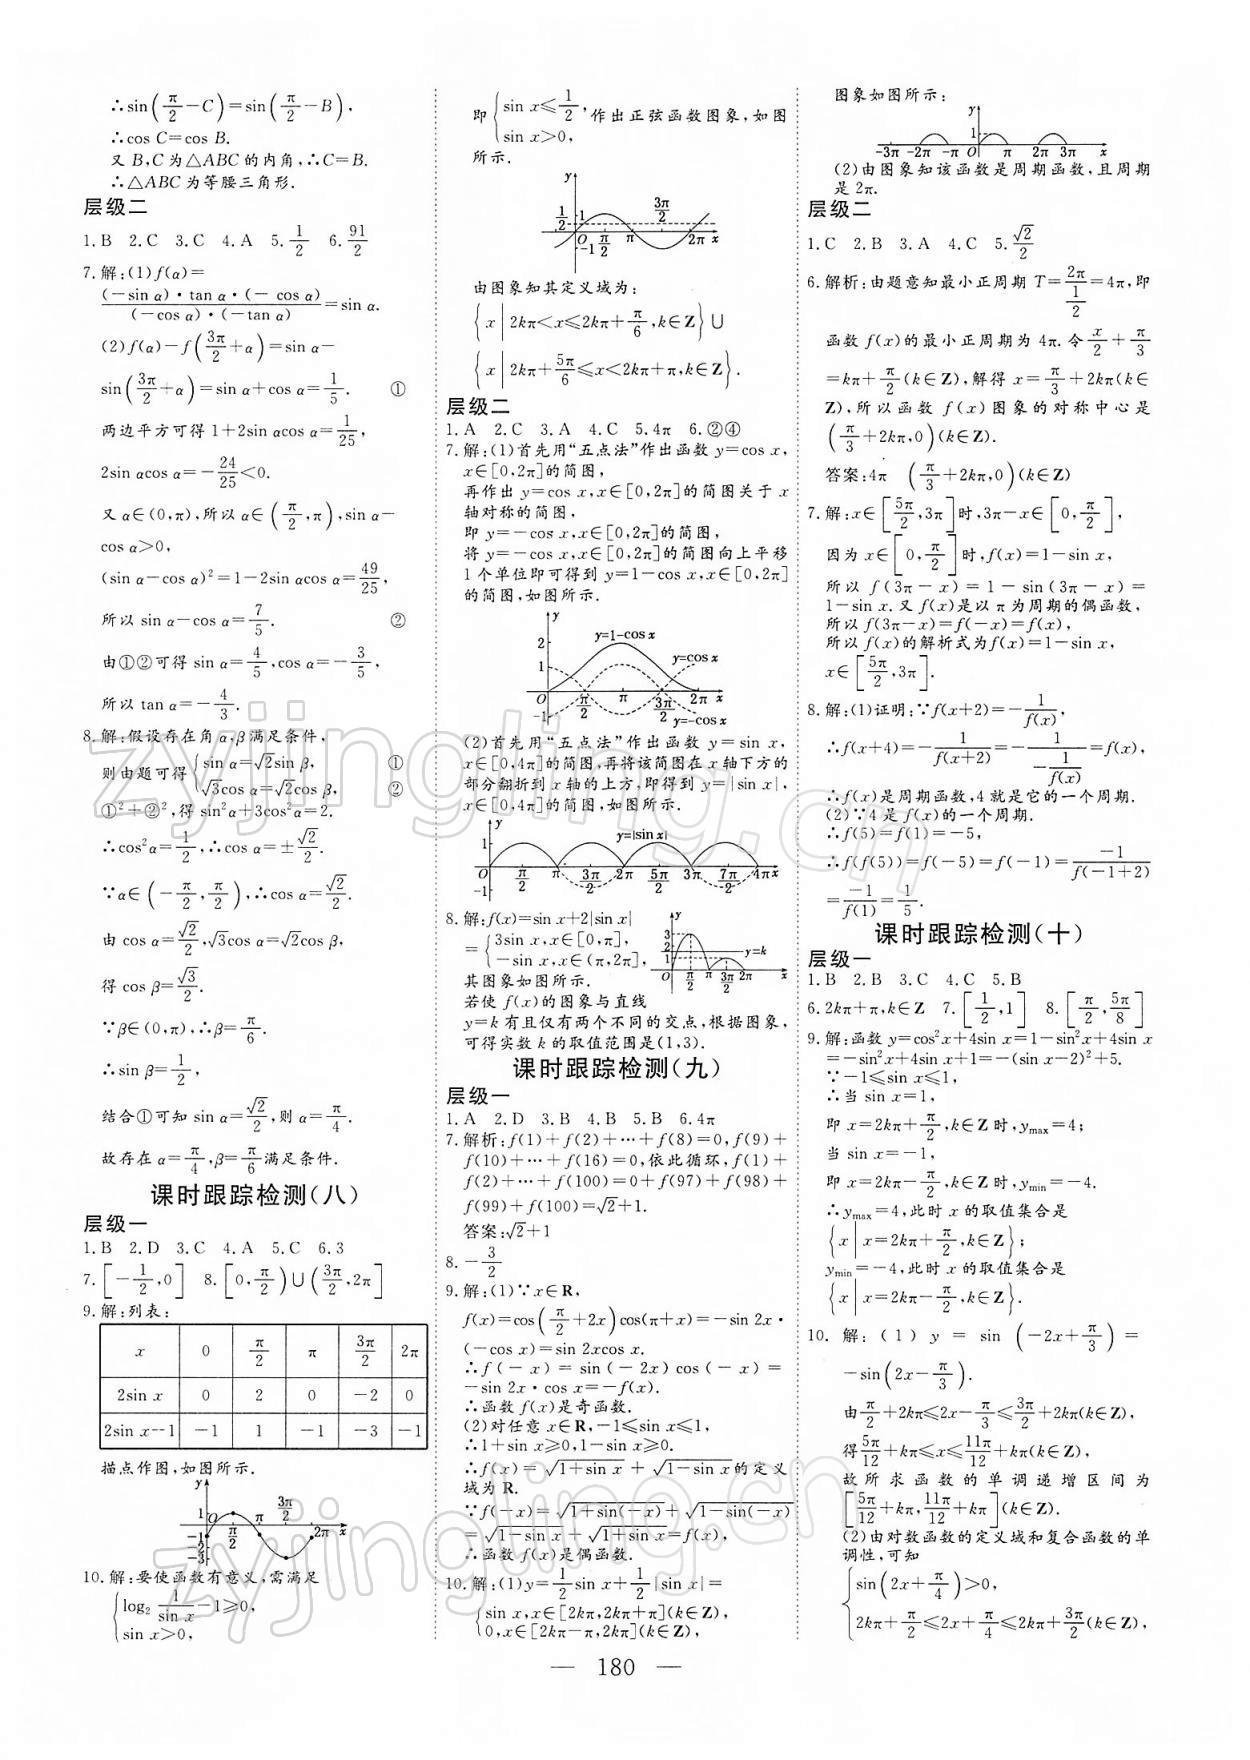 ∴sin(π/2−C)=sin(π/2−B),
∴cos C=cos B.
又 B,C 为△ABC 的内角,∴C=B.
∴△ABC 为等腰三角形.
层级二
1.B 2.C 3.C 4.A 5.1/2 6.91/2
7.解:(1)f(α)=
(−sin α)·tan α·(−cos α)/(−cos α)·(−tan α)=sin α.
(2)f(α)−f(3π/2+α)=sin α−
sin(3π/2+α)=sin α+cos α=1/5. ①
两边平方可得 1+2sin αcos α=1/25,
2sin αcos α=−24/25<0.
又 α∈(0,π),所以 α∈(π/2,π),sin α−
cos α>0,
(sin α−cos α)²=1−2sin αcos α=49/25,
所以 sin α−cos α=7/5. ②
由①②可得 sin α=4/5,cos α=−3/5.
所以 tan α=−4/3.
8.解:假设存在角 α,β 满足条件,
则由题可得{sin α=√2sin β, ①
√3cos α=√2cos β, ②
①²+②²,得 sin²α+3cos²α=2.
∴cos²α=1/2,∴cos α=±√2/2.
∵α∈(−π/2,π/2),∴cos α=√2/2.
由 cos α=√2/2,√3cos α=√2cos β,
得 cos β=√3/2.
∵β∈(0,π),∴β=π/6.
∴sin β=1/2,
结合①可知 sin α=√2/2,则 α=π/4.
故存在 α=π/4,β=π/6 满足条件.
课时跟踪检测(八)
层级一
1.B 2.D 3.C 4.A 5.C 6.3
7.[−1/2,0] 8.[0,π/2)∪(3π/2,2π]
9.解:列表:
x 0 π/2 π 3π/2 2π
2sin x 0 2 0 −2 0
2sin x−1 −1 1 −1 −3 −1
描点作图,如图所示.
y 1 O −1 −2 −3 π/2 π 3π/2 2π x
10.解:要使函数有意义,需满足
{log₂ 1/sin x−1≥0,
sin x>0,
即{sin x≤1/2, 作出正弦函数图象,如图
sin x>0,
所示.
y 1/2 1 O −1 π/2 π 3π/2 2π x
由图象知其定义域为:
{x|2kπ<x≤2kπ+π/6,k∈Z}∪
{x|2kπ+5π/6≤x<2kπ+π,k∈Z}.
层级二
1.A 2.C 3.A 4.C 5.4π 6.②④
7.解:(1)首先用“五点法”作出函数 y=cos x,
x∈[0,2π]的简图,
再作出 y=cos x,x∈[0,2π]的简图关于 x
轴对称的简图,
即 y=−cos x,x∈[0,2π]的简图,
将 y=−cos x,x∈[0,2π]的简图向上平移
1 个单位即可得到 y=1−cos x,x∈[0,2π]
的简图,如图所示.
y 2 1 O −1 y=1−cos x y=cos x π/2 π 3π/2 2π x y=−cos x
(2)首先用“五点法”作出函数 y=sin x,
x∈[0,4π]的简图,再将该简图在 x 轴下方的
部分翻折到 x 轴的上方,即得到 y=|sin x|,
x∈[0,4π]的简图,如图所示.
y 1 O −1 y=|sin x| π/2 π 3π/2 2π 5π/2 3π 7π/2 4π x
8.解:f(x)=sin x+2|sin x|
={3sin x,x∈[0,π],
−sin x,x∈(π,2π],
y 3 2 1 O y=k π/2 π 3π/2 2π x
其图象如图所示.
若使 f(x)的图象与直线
y=k 有且仅有两个不同的交点,根据图象,
可得实数 k 的取值范围是(1,3).
课时跟踪检测(九)
层级一
1.A 2.D 3.B 4.B 5.B 6.4π
7.解析:f(1)+f(2)+…+f(8)=0,f(9)+
f(10)+…+f(16)=0,依此循环,f(1)+
f(2)+…+f(100)=0+f(97)+f(98)+
f(99)+f(100)=√2+1.
答案:√2+1
8.−3/2
9.解:(1)∵x∈R,
f(x)=cos(π/2+2x)cos(π+x)=−sin 2x·
(−cos x)=sin 2xcos x.
∴f(−x)=sin(−2x)cos(−x)=
−sin 2x·cos x=−f(x).
∴函数 f(x)是奇函数.
(2)对任意 x∈R,−1≤sin x≤1,
∴1+sin x≥0,1−sin x≥0.
∴f(x)=√1+sin x+√1−sin x的定义
域为 R.
∵f(−x)=√1+sin(−x)+√1−sin(−x)
=√1−sin x+√1+sin x=f(x),
∴函数 f(x)是偶函数.
10.解:(1)y=1/2sin x+1/2|sin x|=
{sin x,x∈[2kπ,2kπ+π](k∈Z),
0,x∈[2kπ−π,2kπ](k∈Z),
图象如图所示:
y 1 −3π −2π −π O π 2π 3π x
(2)由图象知该函数是周期函数,且周期
是 2π.
层级二
1.C 2.B 3.A 4.C 5.√2/2
6.解析:由题意知最小正周期 T=2π/(1/2)=4π,即
函数 f(x)的最小正周期为 4π.令 x/2+π/3
=kπ+π/2(k∈Z),解得 x=π/3+2kπ(k∈
Z),所以函数 f(x)图象的对称中心是
(π/3+2kπ,0)(k∈Z).
答案:4π (π/3+2kπ,0)(k∈Z)
7.解:x∈[5π/2,3π]时,3π−x∈[0,π/2],
因为 x∈[0,π/2]时,f(x)=1−sin x,
所以 f(3π−x)=1−sin(3π−x)=
1−sin x.又 f(x)是以 π 为周期的偶函数,
所以 f(3π−x)=f(−x)=f(x),
所以 f(x)的解析式为f(x)=1−sin x,
x∈[5π/2,3π].
8.解:(1)证明:∵f(x+2)=−1/f(x),
∴f(x+4)=−1/f(x+2)=−1/(−1/f(x))=f(x),
∴f(x)是周期函数,4 就是它的一个周期.
(2)∵4 是 f(x)的一个周期.
∴f(5)=f(1)=−5,
∴f(f(5))=f(−5)=f(−1)=−1/f(−1+2)
=−1/f(1)=1/5.
课时跟踪检测(十)
层级一
1.B 2.B 3.C 4.C 5.B
6.2kπ+π,k∈Z 7.[1/2,1] 8.[π/2,5π/8]
9.解:函数 y=cos²x+4sin x=1−sin²x+4sin x
=−sin²x+4sin x+1=−(sin x−2)²+5.
∵−1≤sin x≤1,
∴当 sin x=1,
即 x=2kπ+π/2,k∈Z 时,ymax=4;
当 sin x=−1,
即 x=2kπ−π/2,k∈Z 时,ymin=−4.
∴ymax=4,此时 x 的取值集合是
{x|x=2kπ+π/2,k∈Z};
ymin=−4,此时 x 的取值集合是
{x|x=2kπ−π/2,k∈Z}.
10.解:(1)y=sin(−2x+π/3)=
−sin(2x−π/3).
由π/2+2kπ≤2x−π/3≤3π/2+2kπ(k∈Z),
得5π/12+kπ≤x≤11π/12+kπ(k∈Z),
故所求函数的单调递增区间为
[5π/12+kπ,11π/12+kπ](k∈Z).
(2)由对数函数的定义域和复合函数的单
调性,可知
{sin(2x+π/4)>0,
2kπ+π/2≤2x+π/4≤2kπ+3π/2(k∈Z),
— 180 —
zyjingling.cn
zyjingling.cn